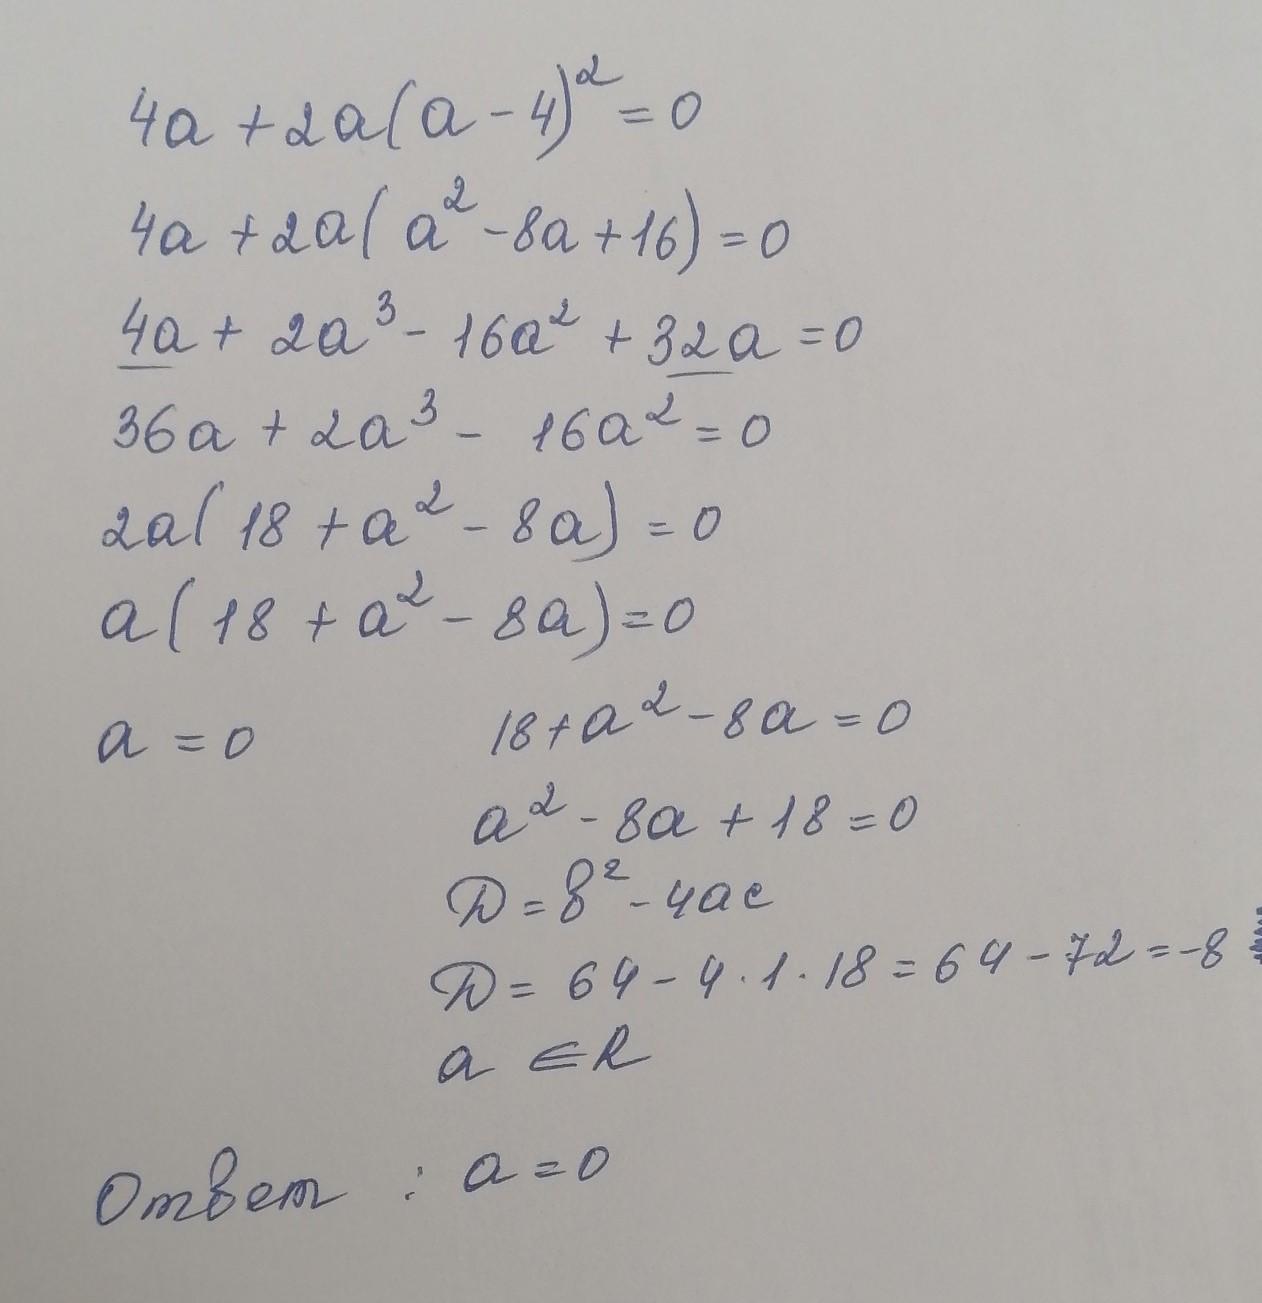 4a + 2a(a - 4)² = 0
4a + 2a(a² - 8a + 16) = 0
4a + 2a³ - 16a² + 32a = 0
36a + 2a³ - 16a² = 0
2a(18 + a² - 8a) = 0
a(18 + a² - 8a) = 0
a = 0
18 + a² - 8a = 0
a² - 8a + 18 = 0
D = b² - 4ac
D = 64 - 4 · 1 · 18 = 64 - 72 = -8
a ∈ R
Ответ : a = 0